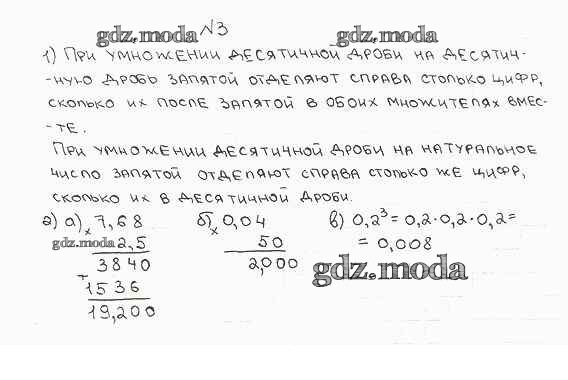 gdz.moda №3 gdz.moda
1) При умножении десятичной дроби на десятич-
-ную дробь запятой отделяют справа столько цифр,
сколько их после запятой в обоих множителях вмес-
-те.
При умножении десятичной дроби на натуральное
число запятой отделяют справа столько же цифр,
сколько их в десятичной дроби.
2) а) × 7,68 б) × 0,04 в) 0,2³ = 0,2·0,2·0,2 =
gdz.moda 2,5 50 = 0,008
3840 2,000 gdz.moda
+
1536
19,200